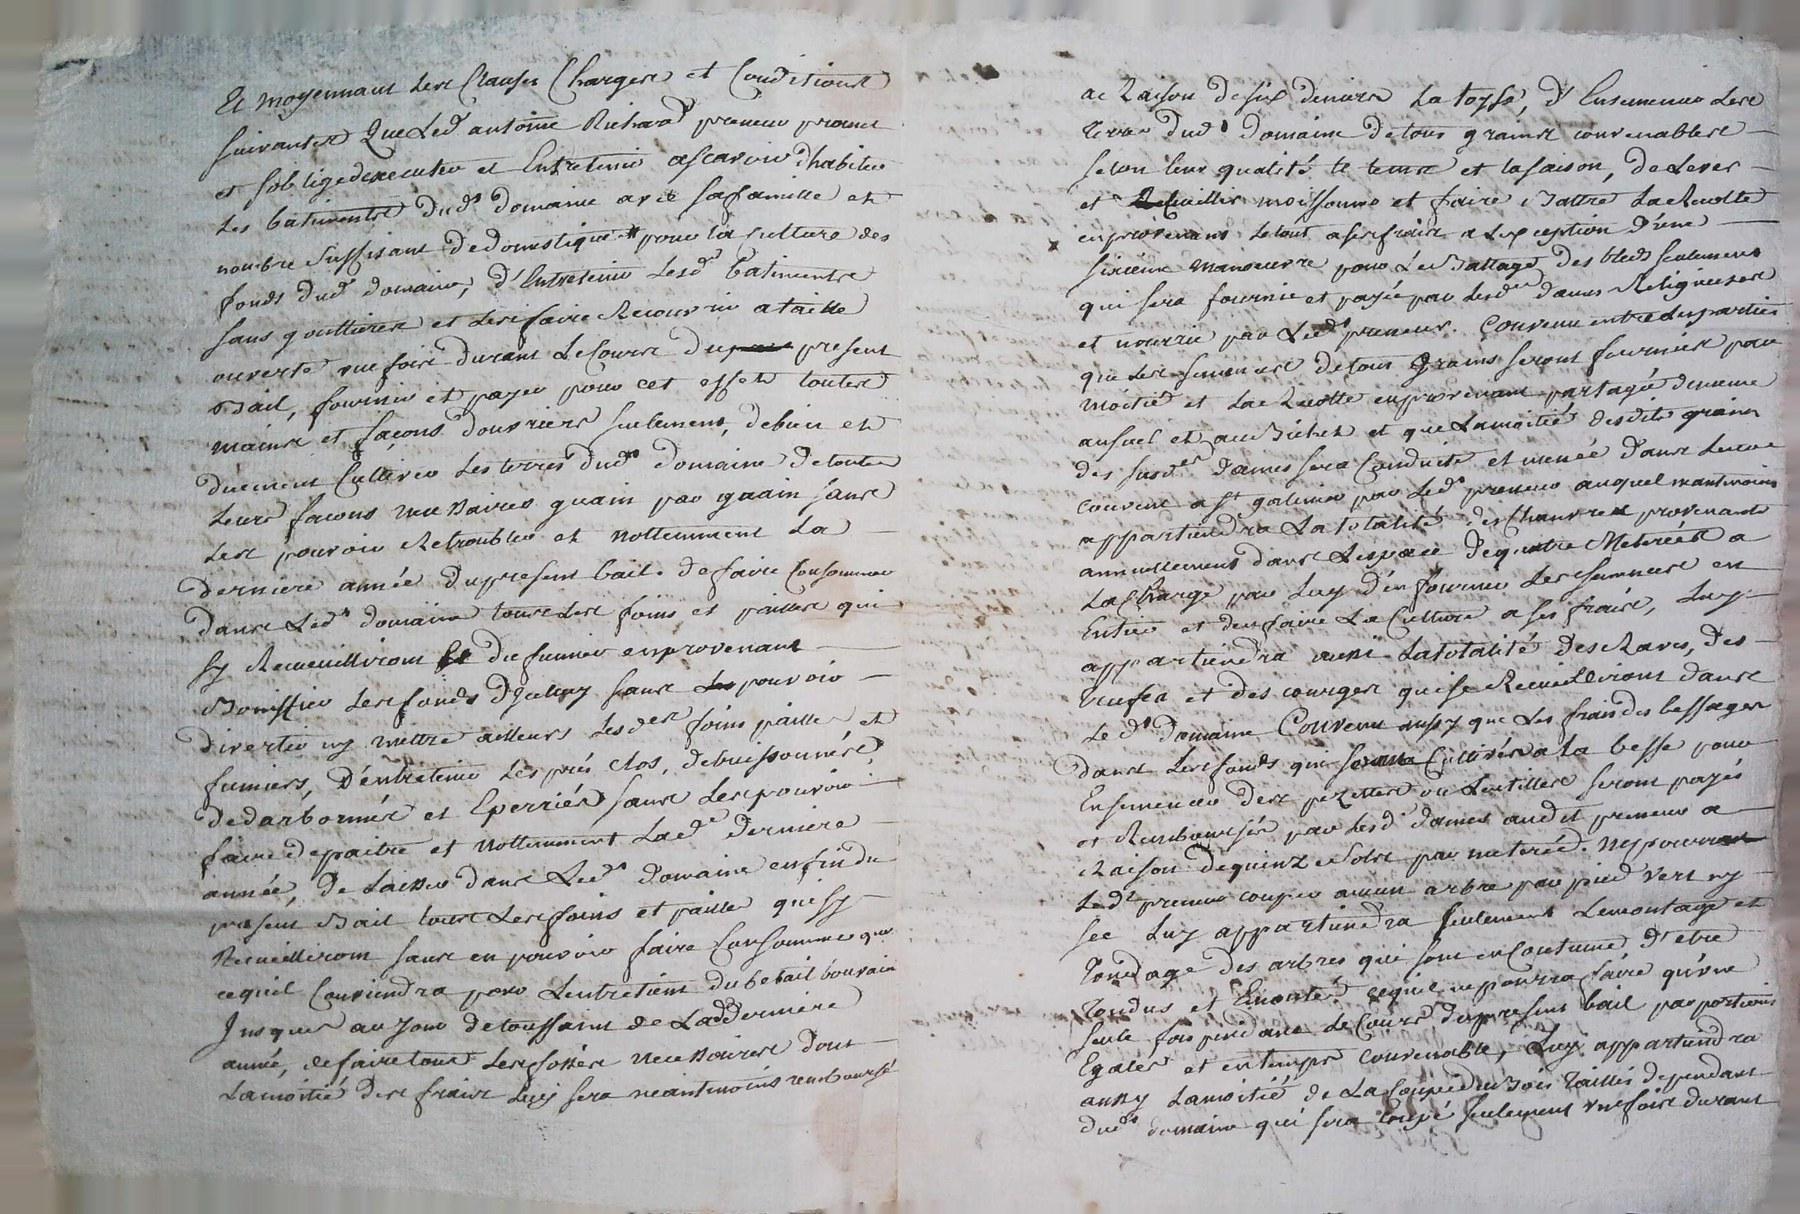 Et moyennant les Clauses Charges et Conditions
suivantes Que Led. antoine Richard preneur promet
et soblige dexecuter et Entretenir ascavoir d'habiter
Les batiments dud. domaine avec sa famille et
nombre suffisant de domestiques pour la Culture des
fonds dud. domaine, d'Entretenir Lesd. batiments
sans gouttieres et Les faire Recouvrir a taille
ouverte une fois durant Le Cours du present
Bail, fournir et payer pour cet effet toutes
mains et façons douvriers seulement, de bien et
duement Cultiver Les terres dud. domaine de toutes
Leurs façons necessaires guain par guain sans
Les pouvoir Retroubler et nottemment La
derniere année du present bail. de faire Consommer
dans Led. domaine tous Les foins et pailles qui
sy Recueilliront du fumier en provenant
Bonifier Les fonds d'yceluy sans pouvoir
divertir ny mettre ailleurs Lesd. foins pailles et
fumiers, D'entretenir Les prés Clos, debuissonnés,
dedarbonnés et Eperriés sans Les pouvoir
faire depaitre et nottemment Lad. derniere
année, de Laisser dans Led. domaine en fin du
present Bail tous Les foins et pailles qui sy
Recueilliront sans en pouvoir faire Consommer que
ce quil Conviendra pour Lentretient du betail bouvain
Jusques au Jour de toussaint de Lad. derniere
année, de faire tous Les fossés necessaires dont
La moitié des frais Luy sera neantmoins remboursé
a Raison de six deniers La toyse, d'Ensemencer Les
terres dud. domaine de tous grains convenables
selon leur qualité le tems et la saison, de Lever
et Recueillir moissonner et faire Battre La Recolte
en provenans Le tout a ses frais a Lexception d'une
sixieme manoeuvre pour Le Battage des bleds seulement
qui sera fournie et payée par Lesd. dames Religieuses
et nourrie par Led. preneur. Convenu entre Les parties
que Les semences de tous grains seront fournies par
moitié et La Recolte en provenant partagée de meme
au suel et au Bichet et que La moitié desdits grains
des susd. dames sera Conduite et menée dans Leur
Couvent a St. galmier par Led. preneur auquel neantmoins
appartiendra La totalité des Chanvres provenants
annuellement dans Lespace de quatre Meterées a
La Charge par Luy d'en fournir Les semences en
Entier et d'en faire La Culture a ses frais, Luy
appartiendra aussi La totalité des Raves, des
et des courges qui se Recueilliront dans
Le d. domaine Convenu aussy que Les frais des bessages
dans Les fonds qui seront Cultivés a la besse pour
Ensemencer des pezettes ou Lentilles seront payés
et Remboursés par Lesd. dames audit preneur a
Raison de quinze Sols par meterée. ne pourra
Led. preneur couper aucun arbre par pied vert ny
sec Luy appartiendra seulement Lemontage et
Tondage des arbres qui sont en Coutume d'etre
Tondus et Emontés ce quil ne pourra faire qu'une
seule fois pendant Le Cours du present bail par portions
Egales et en temps convenable, Luy appartiendra
aussy La moitié de La Coupe du Bois Taillis dependant
dud. domaine qui sera Coupé seulement une fois durant